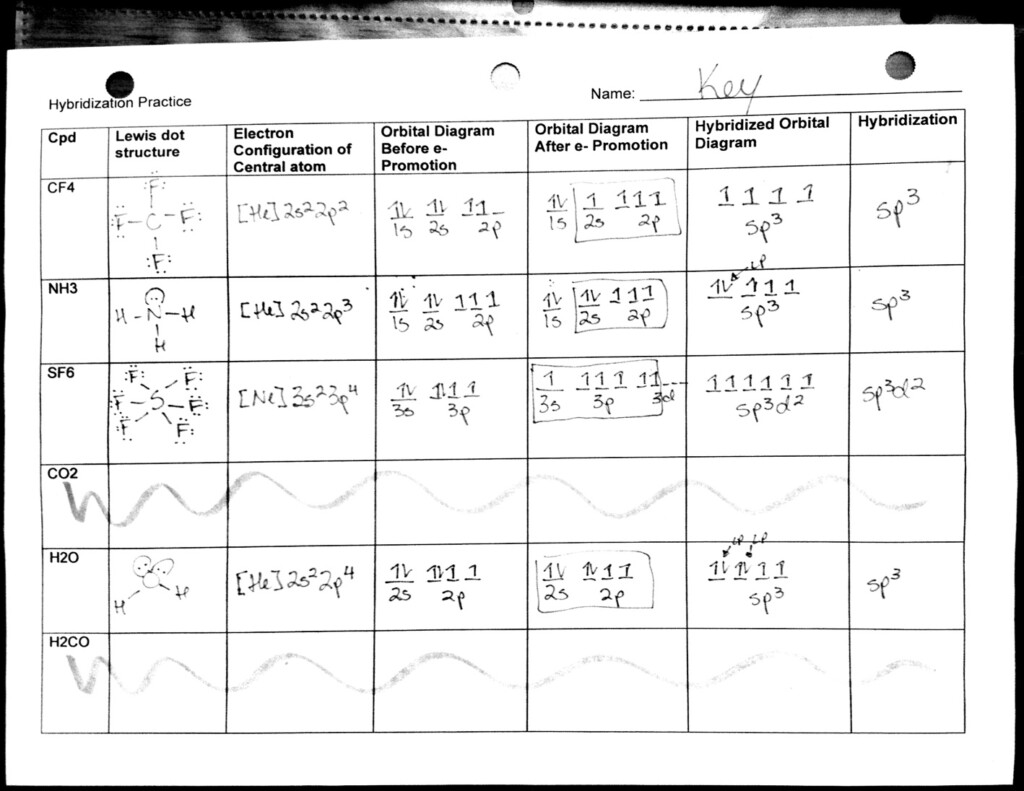 Name: Key
Hybridization Practice
Cpd | Lewis dot structure | Electron Configuration of Central atom | Orbital Diagram Before e- Promotion | Orbital Diagram After e- Promotion | Hybridized Orbital Diagram | Hybridization
CF4 | F C F F F | [He] 2s²2p² | 1↿⇂ 1s 2s 2p | 1s 2s 2p | 1 1 1 1 sp³ | sp³
NH3 | H - N - H H | [He] 2s²2p³ | 1s 2s 2p | 1s 2s 2p | LP 1 1 1 sp³ | sp³
SF6 | F F F S F F F | [Ne] 3s²3p⁴ | 3s 3p | 3s 3p 3d | 1 1 1 1 1 1 sp³d² | sp³d²
CO2
H2O | O H H | [He] 2s²2p⁴ | 2s 2p | 2s 2p | LP LP 1 1 sp³ | sp³
H2CO